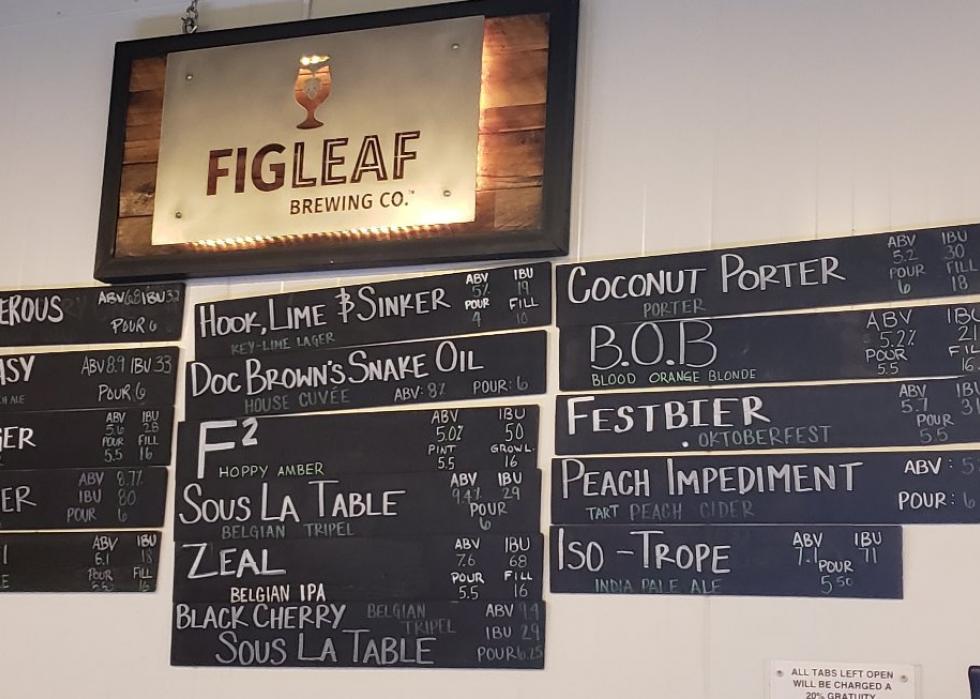 FIGLEAF
BREWING CO.™
EROUS
ABV 6.8 IBU 32
POUR 6
ASY
ABV 8.9 IBU 33
ALE
POUR 6
GER
ABV IBU
5.6 28
POUR FILL
5.5 16
ER
ABV 8.7%
IBU 80
POUR 6
ABV IBU
6.1 18
POUR FILL
HOOK, LIME & SINKER
KEY-LIME LAGER
ABV IBU
5% 19
POUR FILL
4 10
DOC BROWN'S SNAKE OIL
HOUSE CUVÉE
ABV: 8% POUR: 6
F²
HOPPY AMBER
ABV IBU
5.0% 50
PINT GROWL.
5.5 16
SOUS LA TABLE
BELGIAN TRIPEL
ABV IBU
9.4% 29
POUR
6
ZEAL
BELGIAN IPA
ABV IBU
7.6 68
POUR FILL
5.5 16
BLACK CHERRY BELGIAN
TRIPEL
SOUS LA TABLE
ABV 9.4
IBU 29
POUR 6.25
COCONUT PORTER
PORTER
ABV IBU
5.2 30
POUR FILL
6 18
B.O.B
BLOOD ORANGE BLONDE
ABV IBU
5.2% 21
POUR FIL
5.5 16
FESTBIER
. OKTOBERFEST
ABV IBU
5.7
POUR
5.5
PEACH IMPEDIMENT
TART PEACH CIDER
ABV : 5
POUR: 6
ISO-TROPE
INDIA PALE ALE
ABV IBU
7.1 71
POUR
5.50
ALL TABS LEFT OPEN
WILL BE CHARGED A
20% GRATUITY